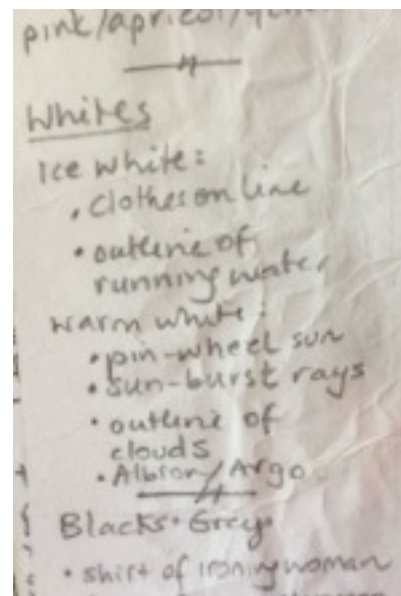 pink/apricot/
Whites
Ice white:
• Clothes on line
• outline of
running water
Warm white:
• pin-wheel sun
• sun-burst rays
• outline of
clouds
• Albion/Argo
Blacks • Greys
• shirt of ironing woman